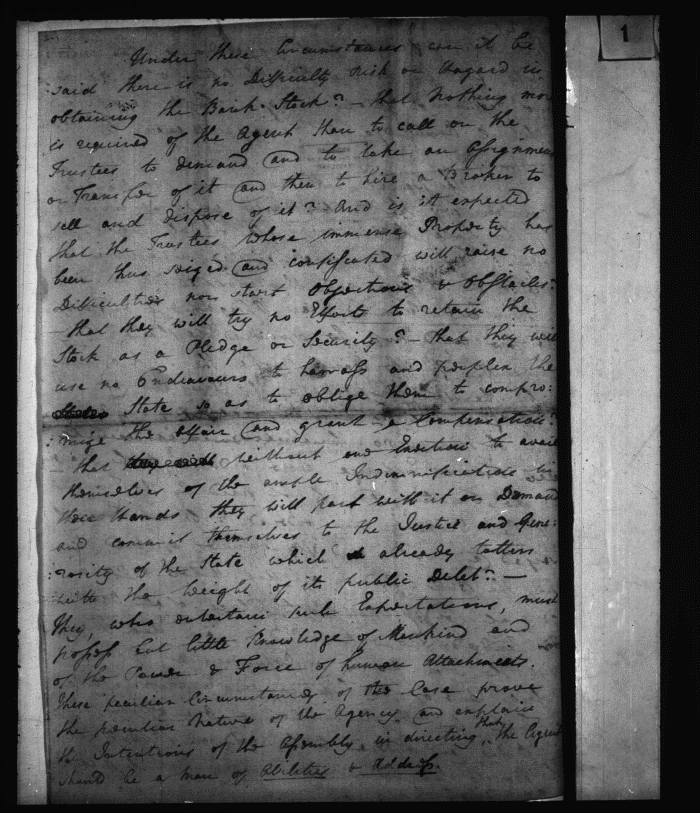 1
Under these Circumstances can it be
said there is no Difficulty risk or Hazard in
obtaining the Bank Stock? — that Nothing more
is required of the Agent than to call on the
Trustees to demand and to take an Assignment
or Transfer of it and then to hire a Broker to
sell and dispose of it? And is it expected
that the Trustees whose immense Property has
been thus seized and confiscated will raise no
Difficulties nor start Objections & Obstacles?
— that they will try no Efforts to retain the
Stock as a Pledge or Security? — that they will
use no Endeavours to harrass and perplex the
State so as to oblige them to compro:
:mize the affair and grant a Compensation?
— that without one Exertion to avail
themselves of the ample Indemnification in
their Hands they will part with it on Demand
and commit themselves to the Justice and Gene:
:rosity of the State which already totters
with the Weight of its public Debt? —
They, who entertain such Expectations, must
possess but little Knowledge of Mankind and
of the Power & Force of human Attachments.
These peculiar Circumstances of the Case prove
the peculiar Nature of the Agency and explain
the Intentions of the Assembly in directing that the Agent
should be a man of Abilities & Address.